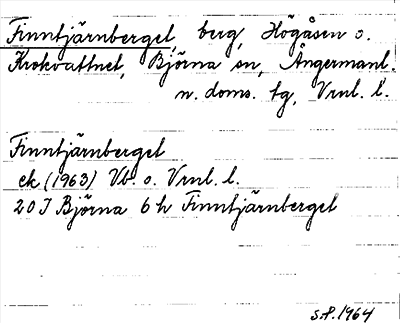 Finntjärnberget, berg, Högåsen o.
Krokvattnet, Björna sn, Ångermanl.
n. doms. tg, Vrnl. l.
Finntjärnberget
ek (1963) Vb. o. Vrnl. l.
20 I Björna 6 h Finntjärnberget
S.P. 1964